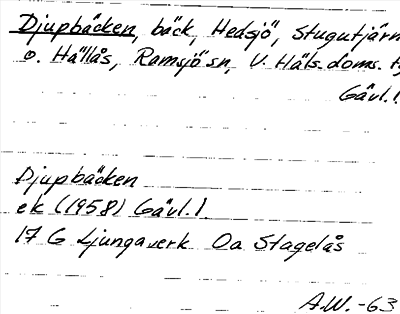 Djupbäcken, bäck, Hedsjö, Stugutjärn
o. Hållås, Ramsjö sn, V. Häls. doms.
Gävl.l
Djupbäcken
ek (1958) Gävl. l
17 G Ljungaverk Oa Stagelås
A.W. -63